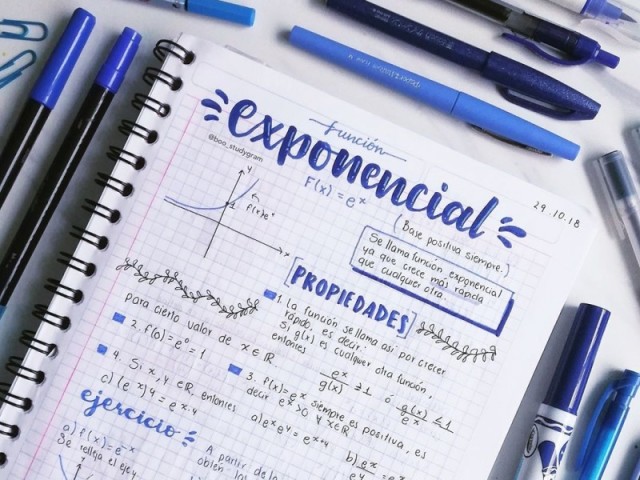 función
exponencial
@boo_studygram
29.10.18
F(x) = e^x
y
1
f(x)=e^x
x
(Base positiva siempre.)
Se llama función exponencial
ya que crece más rápida
que cualquier otra.
[PROPIEDADES]
1. La función se llama así por crecer
rápido, es decir:
Si g(x) es cualquier otra función,
entonces
e^x/g(x) ≥ 1 ó g(x)/e^x ≤ 1
para cierto valor de x ∈ ℝ
2. f(0) = e^0 = 1
3. f(x) = e^x siempre es positiva, es
decir e^x > 0 ∀ x ∈ ℝ
4. Si x, y ∈ ℝ, entonces
a) e^x e^y = e^x+y
b) e^x/e^y = e^x-
c) (e^x)^y = e^x·y
ejercicio
a) f(x) = e^-x
Se refleja el eje y
A partir de la